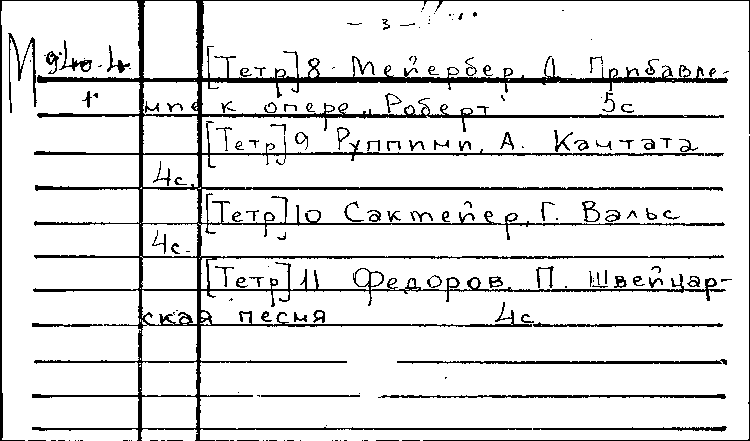 - 3 -
М 940.4 [Тетр] 8 Мейербер, Д. Прибавле-
1 ние к опере „Роберт" 5с
[Тетр] 9 Руппини, А. Кантата
4с.
[Тетр] 10 Сактейер, Г. Вальс
4с.
[Тетр] 11 Федоров, П. Швейцар-
ская песня 4с.